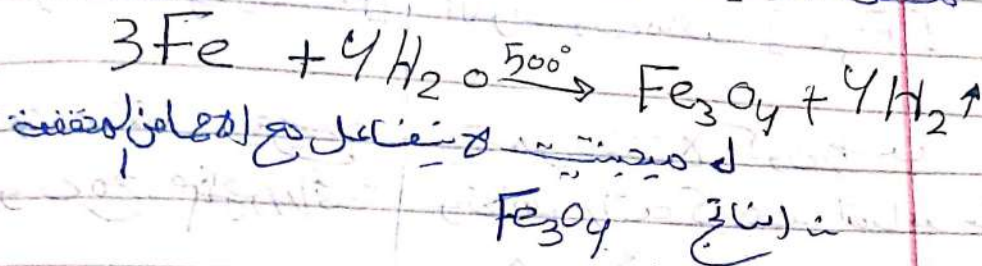 3Fe + 4H₂O 500° → Fe₃O₄ + 4H₂ ↑
لا يتفاعل مع الاحماض المخففة
الناتج Fe₃O₄